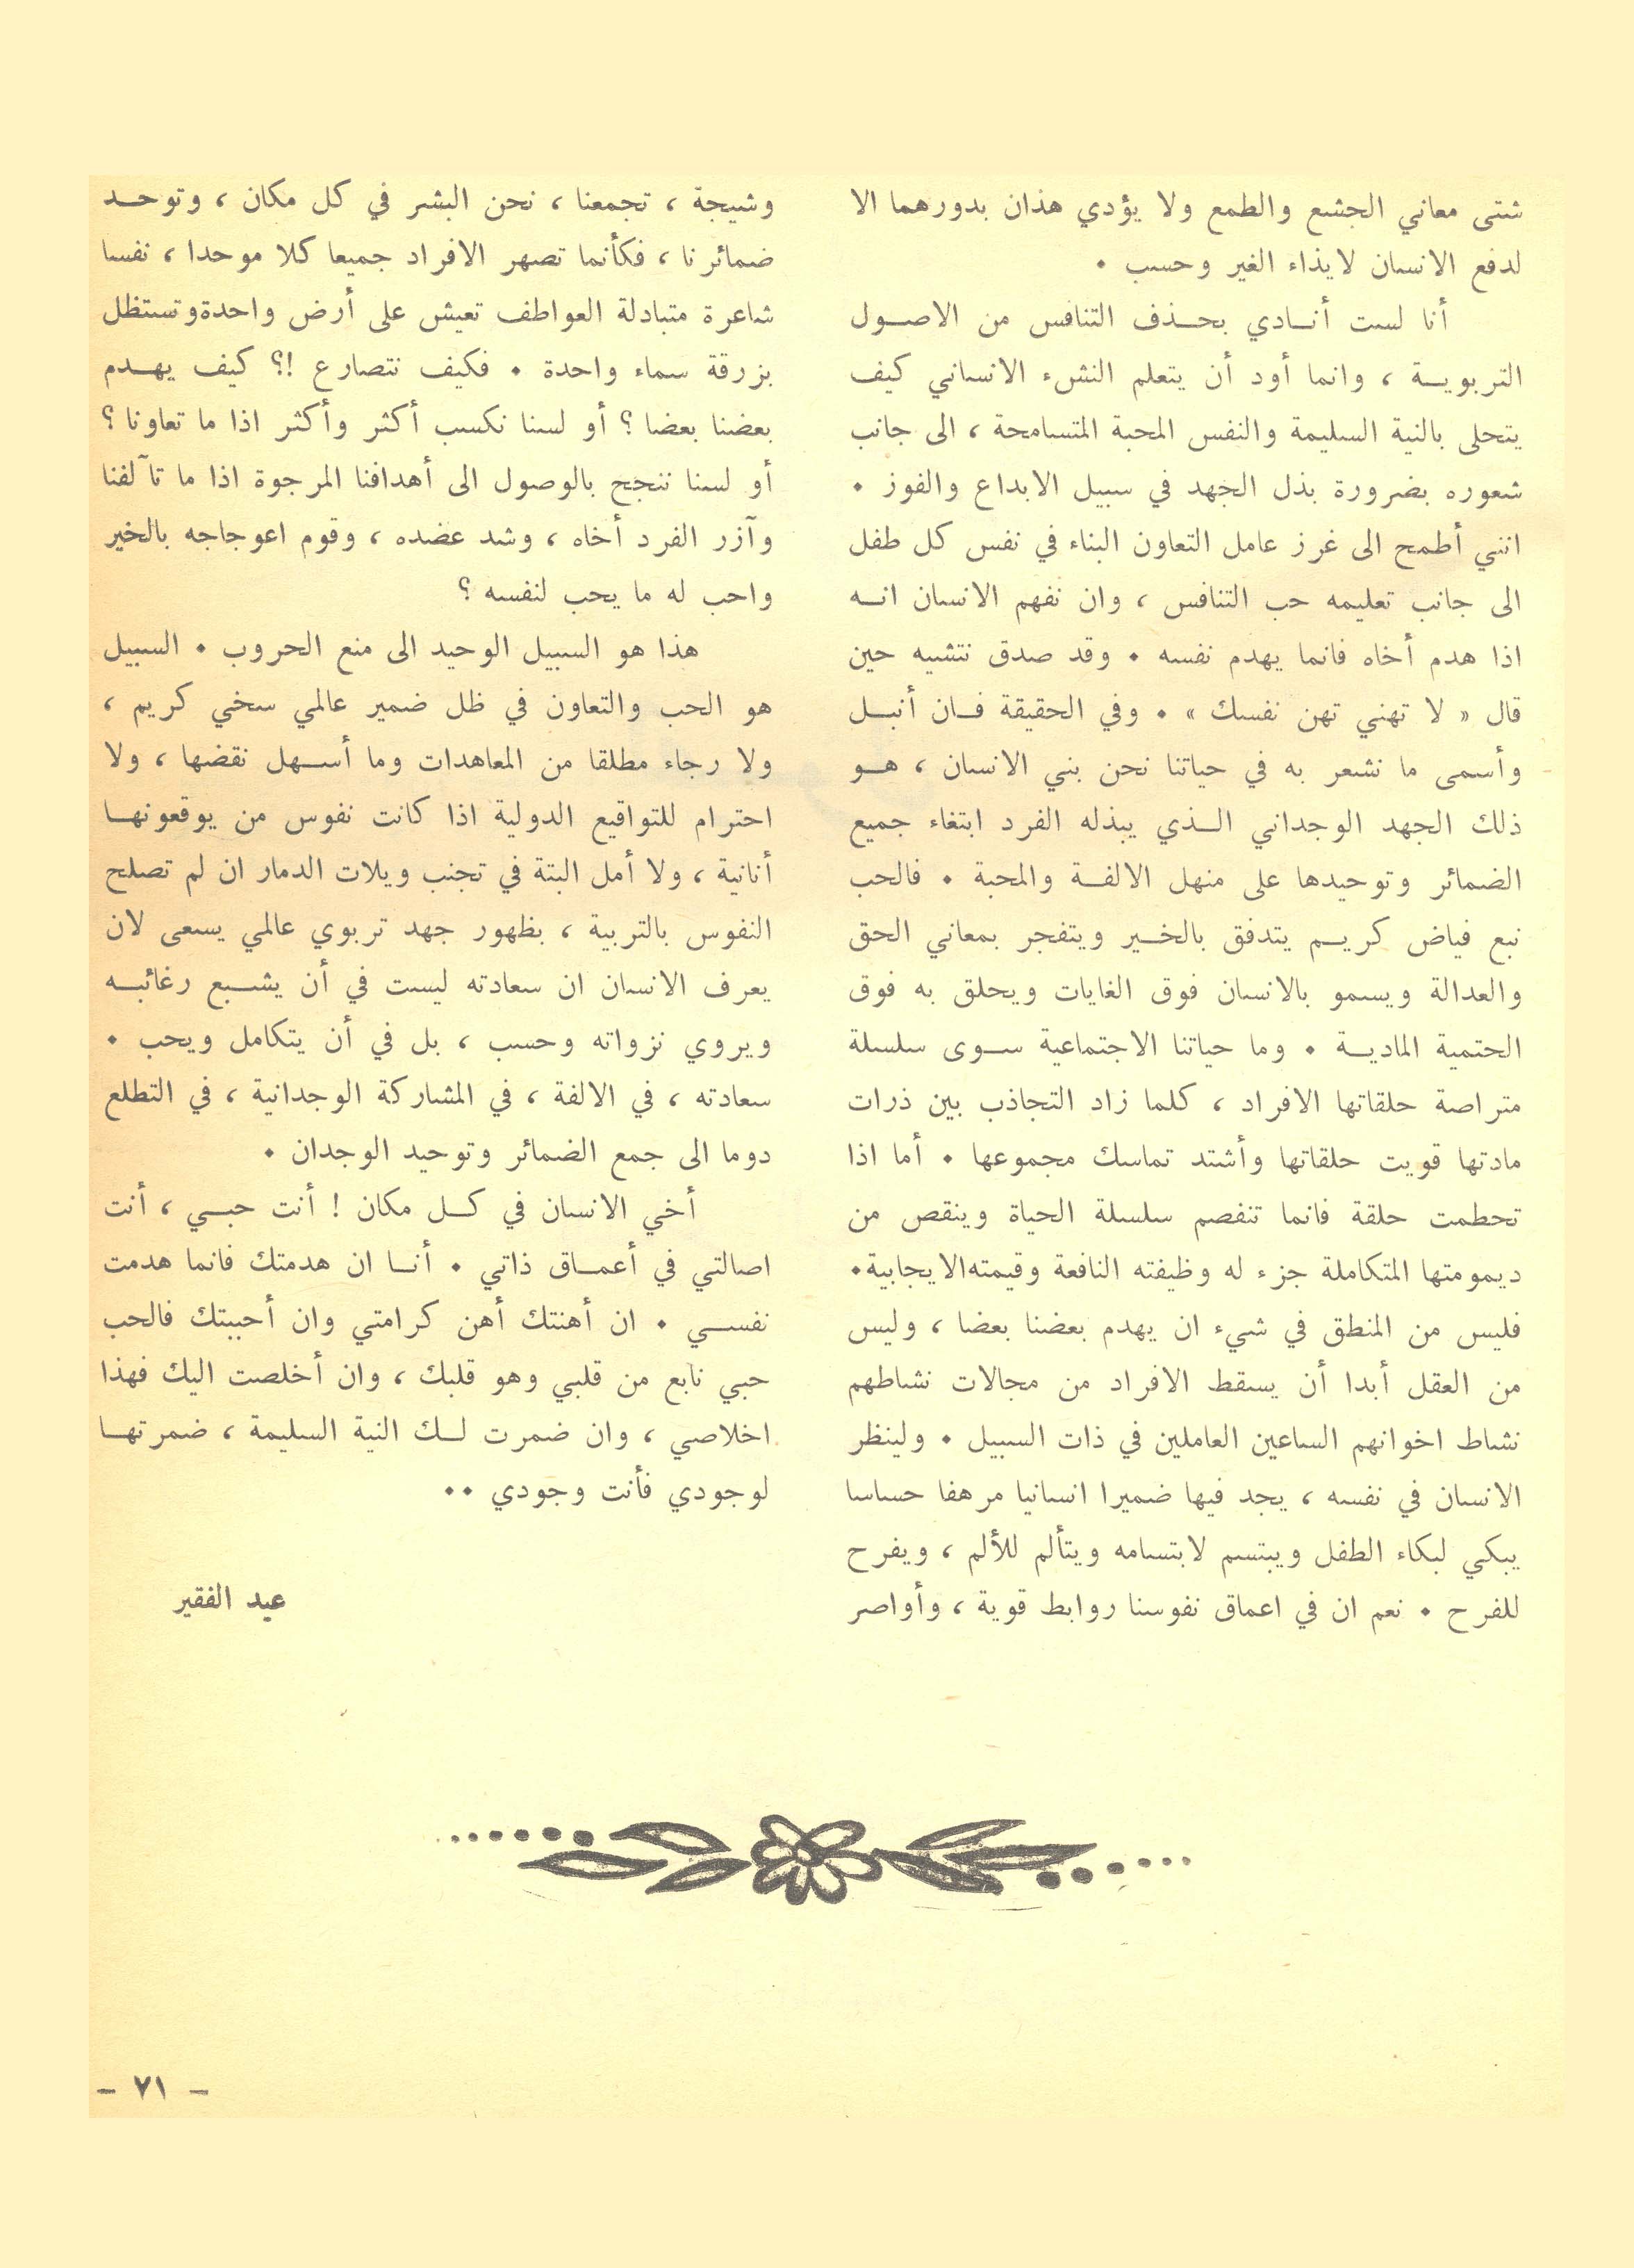 شتى معاني الجشع والطمع ولا يؤدي هذان بدورهما الا
لدفع الانسان لايذاء الغير وحسب .
أنا لست أنادي بحذف التنافس من الاصول
التربوية ، وانما أود أن يتعلم النشء الانساني كيف
يتحلى بالنية السليمة والنفس المحبة المتسامحة ، الى جانب
شعوره بضرورة بذل الجهد في سبيل الابداع والفوز .
انني أطمح الى غرز عامل التعاون البناء في نفس كل طفل
الى جانب تعليمه حب التنافس ، وان نفهم الانسان انه
اذا هدم أخاه فانما يهدم نفسه . وقد صدق نتشيه حين
قال « لا تهني تهن نفسك » . وفي الحقيقة فان أنبل
وأسمى ما نشعر به في حياتنا نحن بني الانسان ، هو
ذلك الجهد الوجداني الذي يبذله الفرد ابتغاء جميع
الضمائر وتوحيدها على منهل الالفة والمحبة . فالحب
نبع فياض كريم يتدفق بالخير ويتفجر بمعاني الحق
والعدالة ويسمو بالانسان فوق الغايات ويحلق به فوق
الحتمية المادية . وما حياتنا الاجتماعية سوى سلسلة
متراصة حلقاتها الافراد ، كلما زاد التجاذب بين ذرات
مادتها قويت حلقاتها وأشتد تماسك مجموعها . أما اذا
تحطمت حلقة فانما تنفصم سلسلة الحياة وينقص من
ديمومتها المتكاملة جزء له وظيفته النافعة وقيمته الايجابية.
فليس من المنطق في شيء ان يهدم بعضنا بعضا ، وليس
من العقل أبدا أن يسقط الافراد من مجالات نشاطهم
نشاط اخوانهم الساعين العاملين في ذات السبيل . ولينظر
الانسان في نفسه ، يجد فيها ضميرا انسانيا مرهفا حساسا
يبكي لبكاء الطفل ويبتسم لابتسامه ويتألم للألم ، ويفرح
للفرح . نعم ان في اعماق نفوسنا روابط قوية ، وأواصر
وشيجة ، تجمعنا ، نحن البشر في كل مكان ، وتوحد
ضمائرنا ، فكأنما تصهر الافراد جميعا كلا موحدا ، نفسا
شاعرة متبادلة العواطف تعيش على أرض واحدة وتستظل
بزرقة سماء واحدة . فكيف نتصارع !؟ كيف يهدم
بعضنا بعضا ؟ أو لسنا نكسب أكثر وأكثر اذا ما تعاونا ؟
أو لسنا ننجح بالوصول الى أهدافنا المرجوة اذا ما تآلفنا
وآزر الفرد أخاه ، وشد عضده ، وقوم اعوجاجه بالخير
واحب له ما يحب لنفسه ؟
هذا هو السبيل الوحيد الى منع الحروب . السبيل
هو الحب والتعاون في ظل ضمير عالمي سخي كريم ،
ولا رجاء مطلقا من المعاهدات وما أسهل نقضها ، ولا
احترام للتواقيع الدولية اذا كانت نفوس من يوقعونها
أنانية ، ولا أمل البتة في تجنب ويلات الدمار ان لم تصلح
النفوس بالتربية ، بظهور جهد تربوي عالمي يسعى لان
يعرف الانسان ان سعادته ليست في أن يشبع رغائبه
ويروي نزواته وحسب ، بل في أن يتكامل ويحب .
سعادته ، في الالفة ، في المشاركة الوجدانية ، في التطلع
دوما الى جمع الضمائر وتوحيد الوجدان .
أخي الانسان في كل مكان ! أنت حبي ، أنت
اصالتي في أعماق ذاتي . أنا ان هدمتك فانما هدمت
نفسي . ان أهنتك أهن كرامتي وان أحببتك فالحب
حبي نابع من قلبي وهو قلبك ، وان أخلصت اليك فهذا
اخلاصي ، وان ضمرت لك النية السليمة ، ضمرتها
لوجودي فأنت وجودي ..
عيد الفقير
- ٧١ -